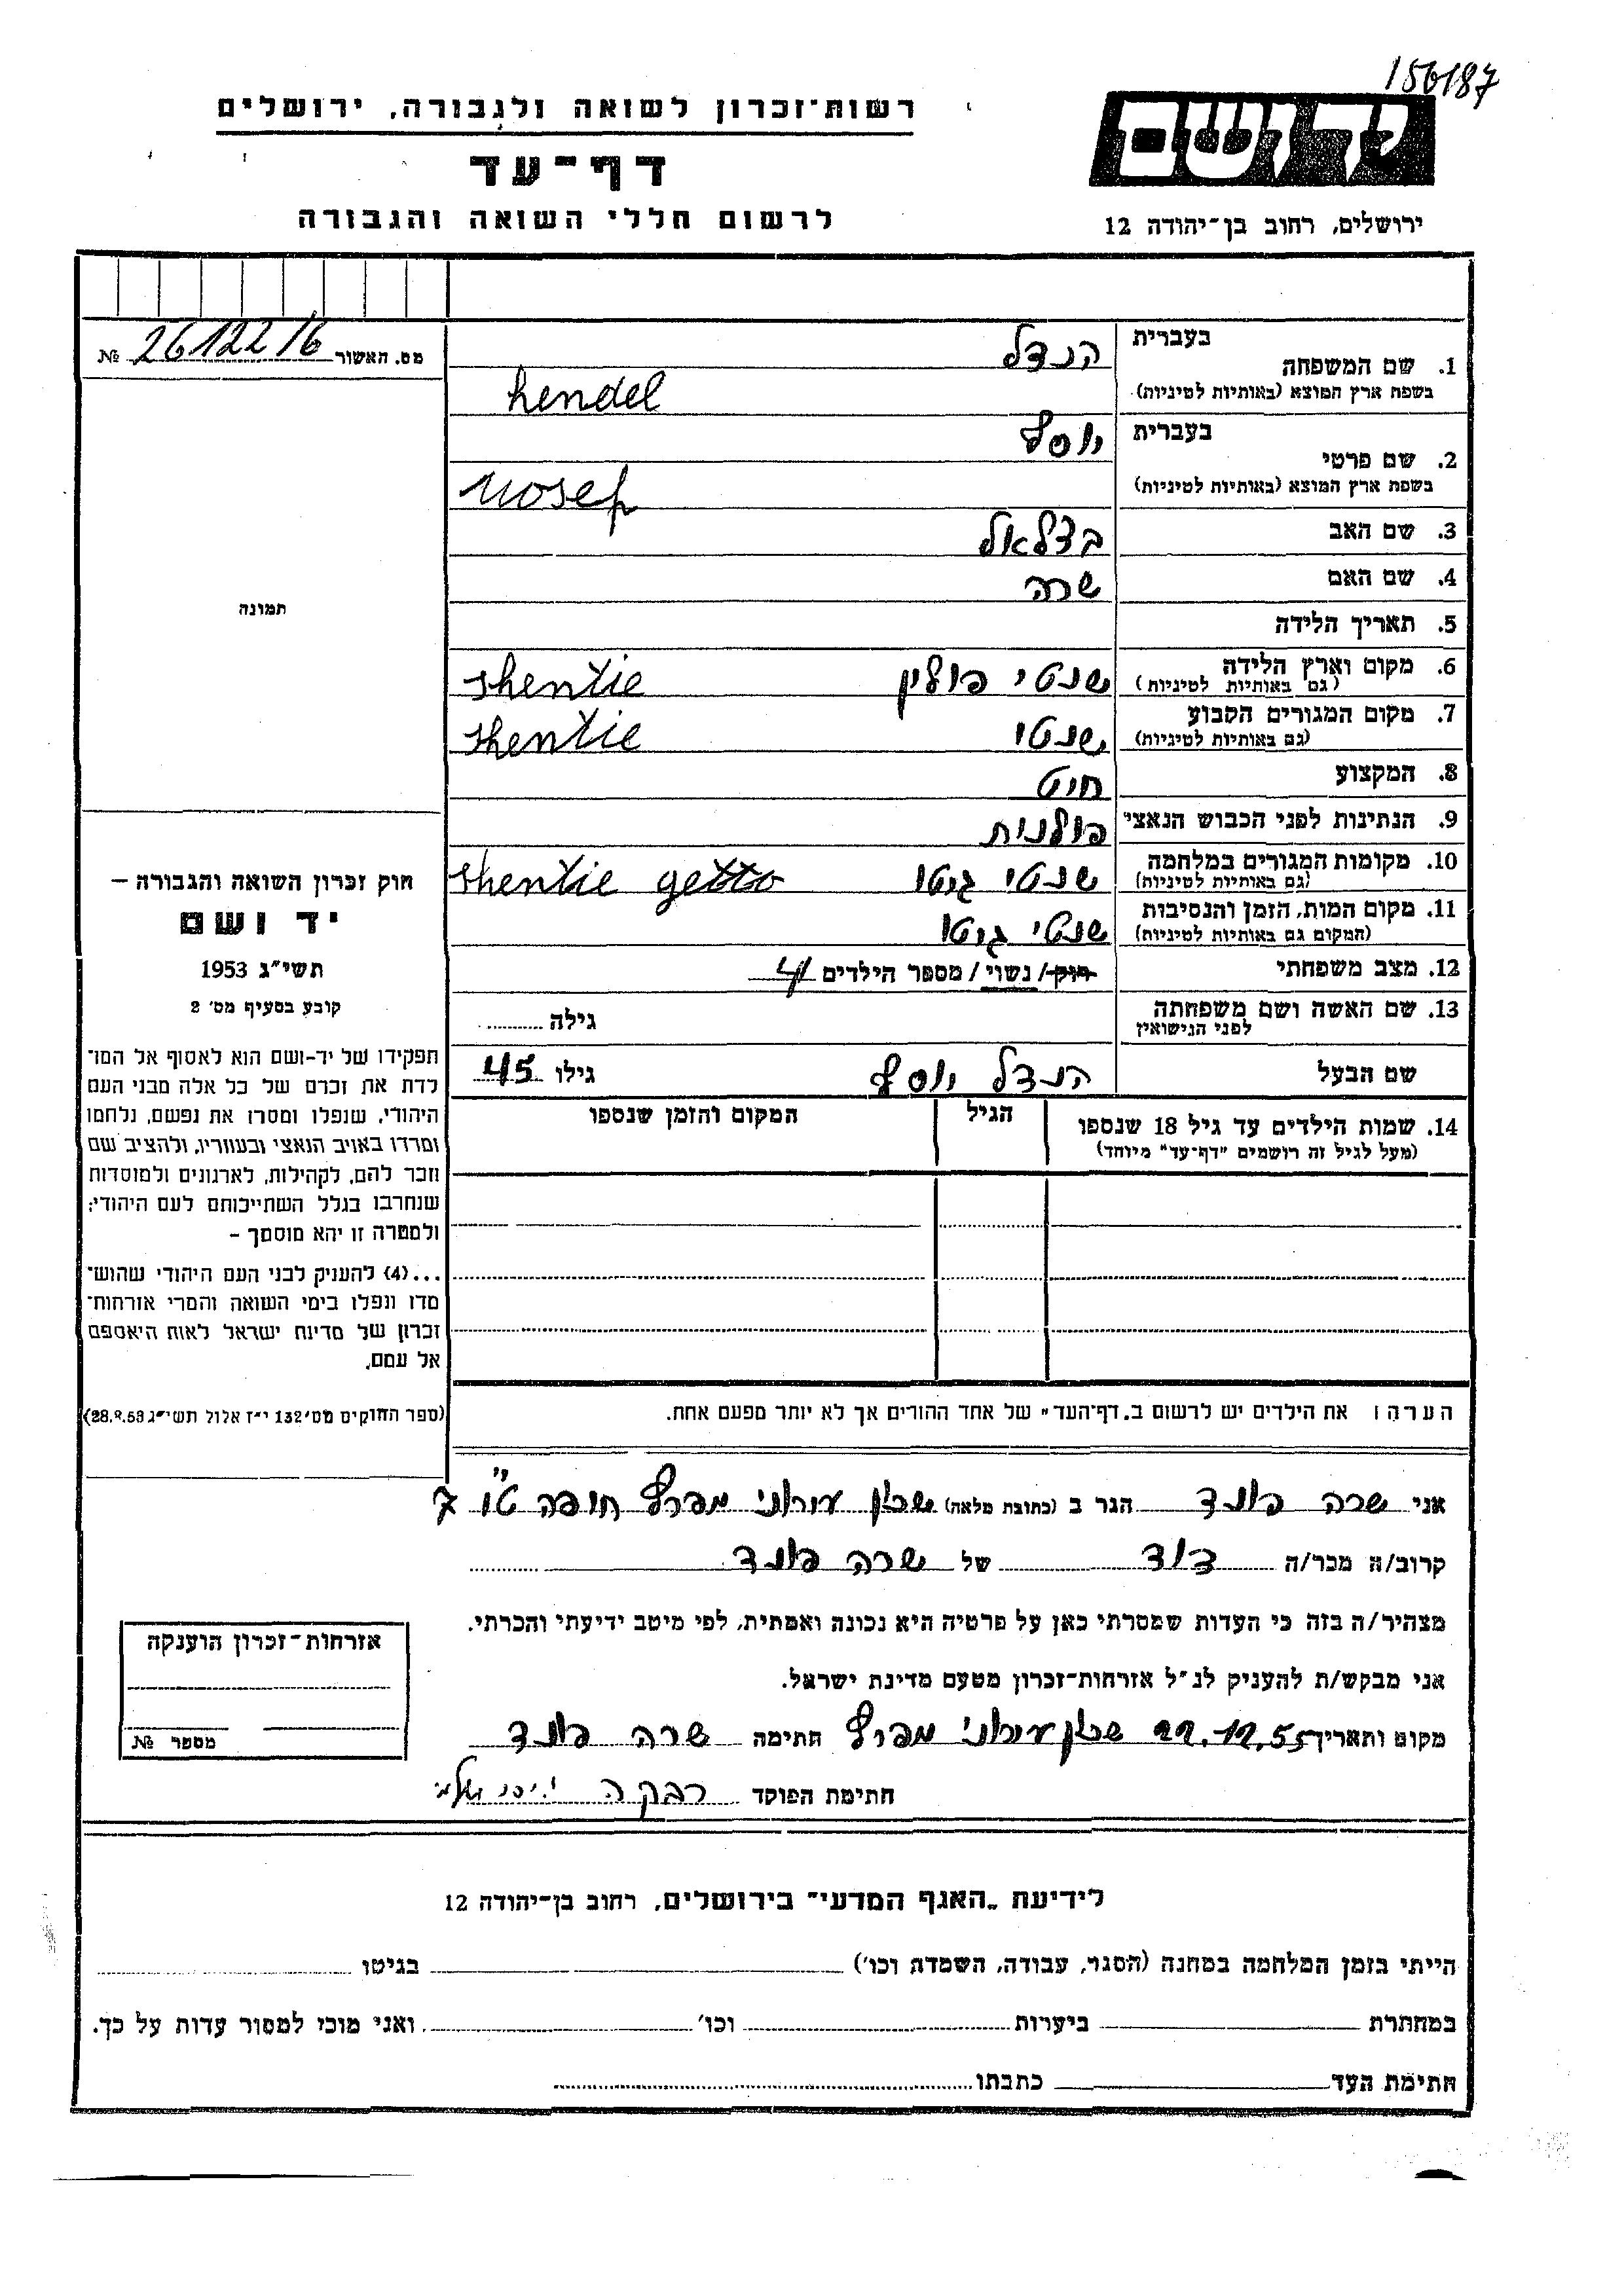 156187
יד ושם
ירושלים, רחוב בן־יהודה 12
רשות־זכרון לשואה ולגבורה, ירושלים
דף־עד
לרשום חללי השואה והגבורה
מס. האשור 26122/6 №
תמונה
בעברית הנדל
1. שם המשפחה
בשפת ארץ המוצא (באותיות לטיניות) hendel
בעברית יוסף
2. שם פרטי
בשפת ארץ המוצא (באותיות לטיניות) uosep
3. שם האב בצלאל
4. שם האם שרה
5. תאריך הלידה
6. מקום וארץ הלידה שנטי פולין shentie
(גם באותיות לטיניות)
7. מקום המגורים הקבוע שנטי shentie
(גם באותיות לטיניות)
8. המקצוע חיט
9. הנתינות לפני הכבוש הנאצי פולנית
10. מקומות המגורים במלחמה שנטי גיטו shentie getto
(גם באותיות לטיניות)
11. מקום המות, הזמן והנסיבות שנטי גיטו
(המקום גם באותיות לטיניות)
12. מצב משפחתי רוק/ נשוי/ מספר הילדים 4
13. שם האשה ושם משפחתה גילה
לפני הנישואין
שם הבעל הנדל יוסף גילו 45
14. שמות הילדים עד גיל 18 שנספו הגיל המקום והזמן שנספו
(מעל לגיל זה רושמים "דף־עד" מיוחד)
חוק זכרון השואה והגבורה –
יד ושם
תשי"ג 1953
קובע בסעיף מס' 2
תפקידו של יד-ושם הוא לאסוף אל המו־
לדת את זכרם של כל אלה מבני העם
היהודי, שנפלו ומסרו את נפשם, נלחמו
ומרדו באויב הנאצי ובעוזריו, ולהציב שם
וזכר להם, לקהילות, לארגונים ולמוסדות
שנחרבו בגלל השתייכותם לעם היהודי;
ולמטרה זו יהא מוסמך –
...(4) להעניק לבני העם היהודי שהוש־
מדו ונפלו בימי השואה והמרי אזרחות־
זכרון של מדינת ישראל לאות היאספם
אל עמם.
(ספר החוקים מס' 132 י"ז אלול תשי"ג 28.8.53)
הערה: את הילדים יש לרשום ב„דף־העד" של אחד ההורים אך לא יותר מפעם אחת.
אני שרה פונד הגר ב (כתובת מלאה) שכון עירוני מפרץ חיפה ט"ו 7
קרוב/ה מכר/ה דוד של שרה פונד
מצהיר/ה בזה כי העדות שמסרתי כאן על פרטיה היא נכונה ואמתית, לפי מיטב ידיעתי והכרתי.
אני מבקש/ת להעניק לנ"ל אזרחות־זכרון מטעם מדינת ישראל.
מקום ותאריך 22.12.55 שכון עירוני מפרץ חתימה שרה פונד
חתימת הפוקד רבקה
אזרחות־זכרון הוענקה
מספר №
לידיעת „האגף המדעי" בירושלים, רחוב בן־יהודה 12
הייתי בזמן המלחמה במחנה (הסגר, עבודה, השמדת וכו') בגיטו
במחתרת ביערות וכו' ואני מוכן למסור עדות על כך.
חתימת העד כתבתו